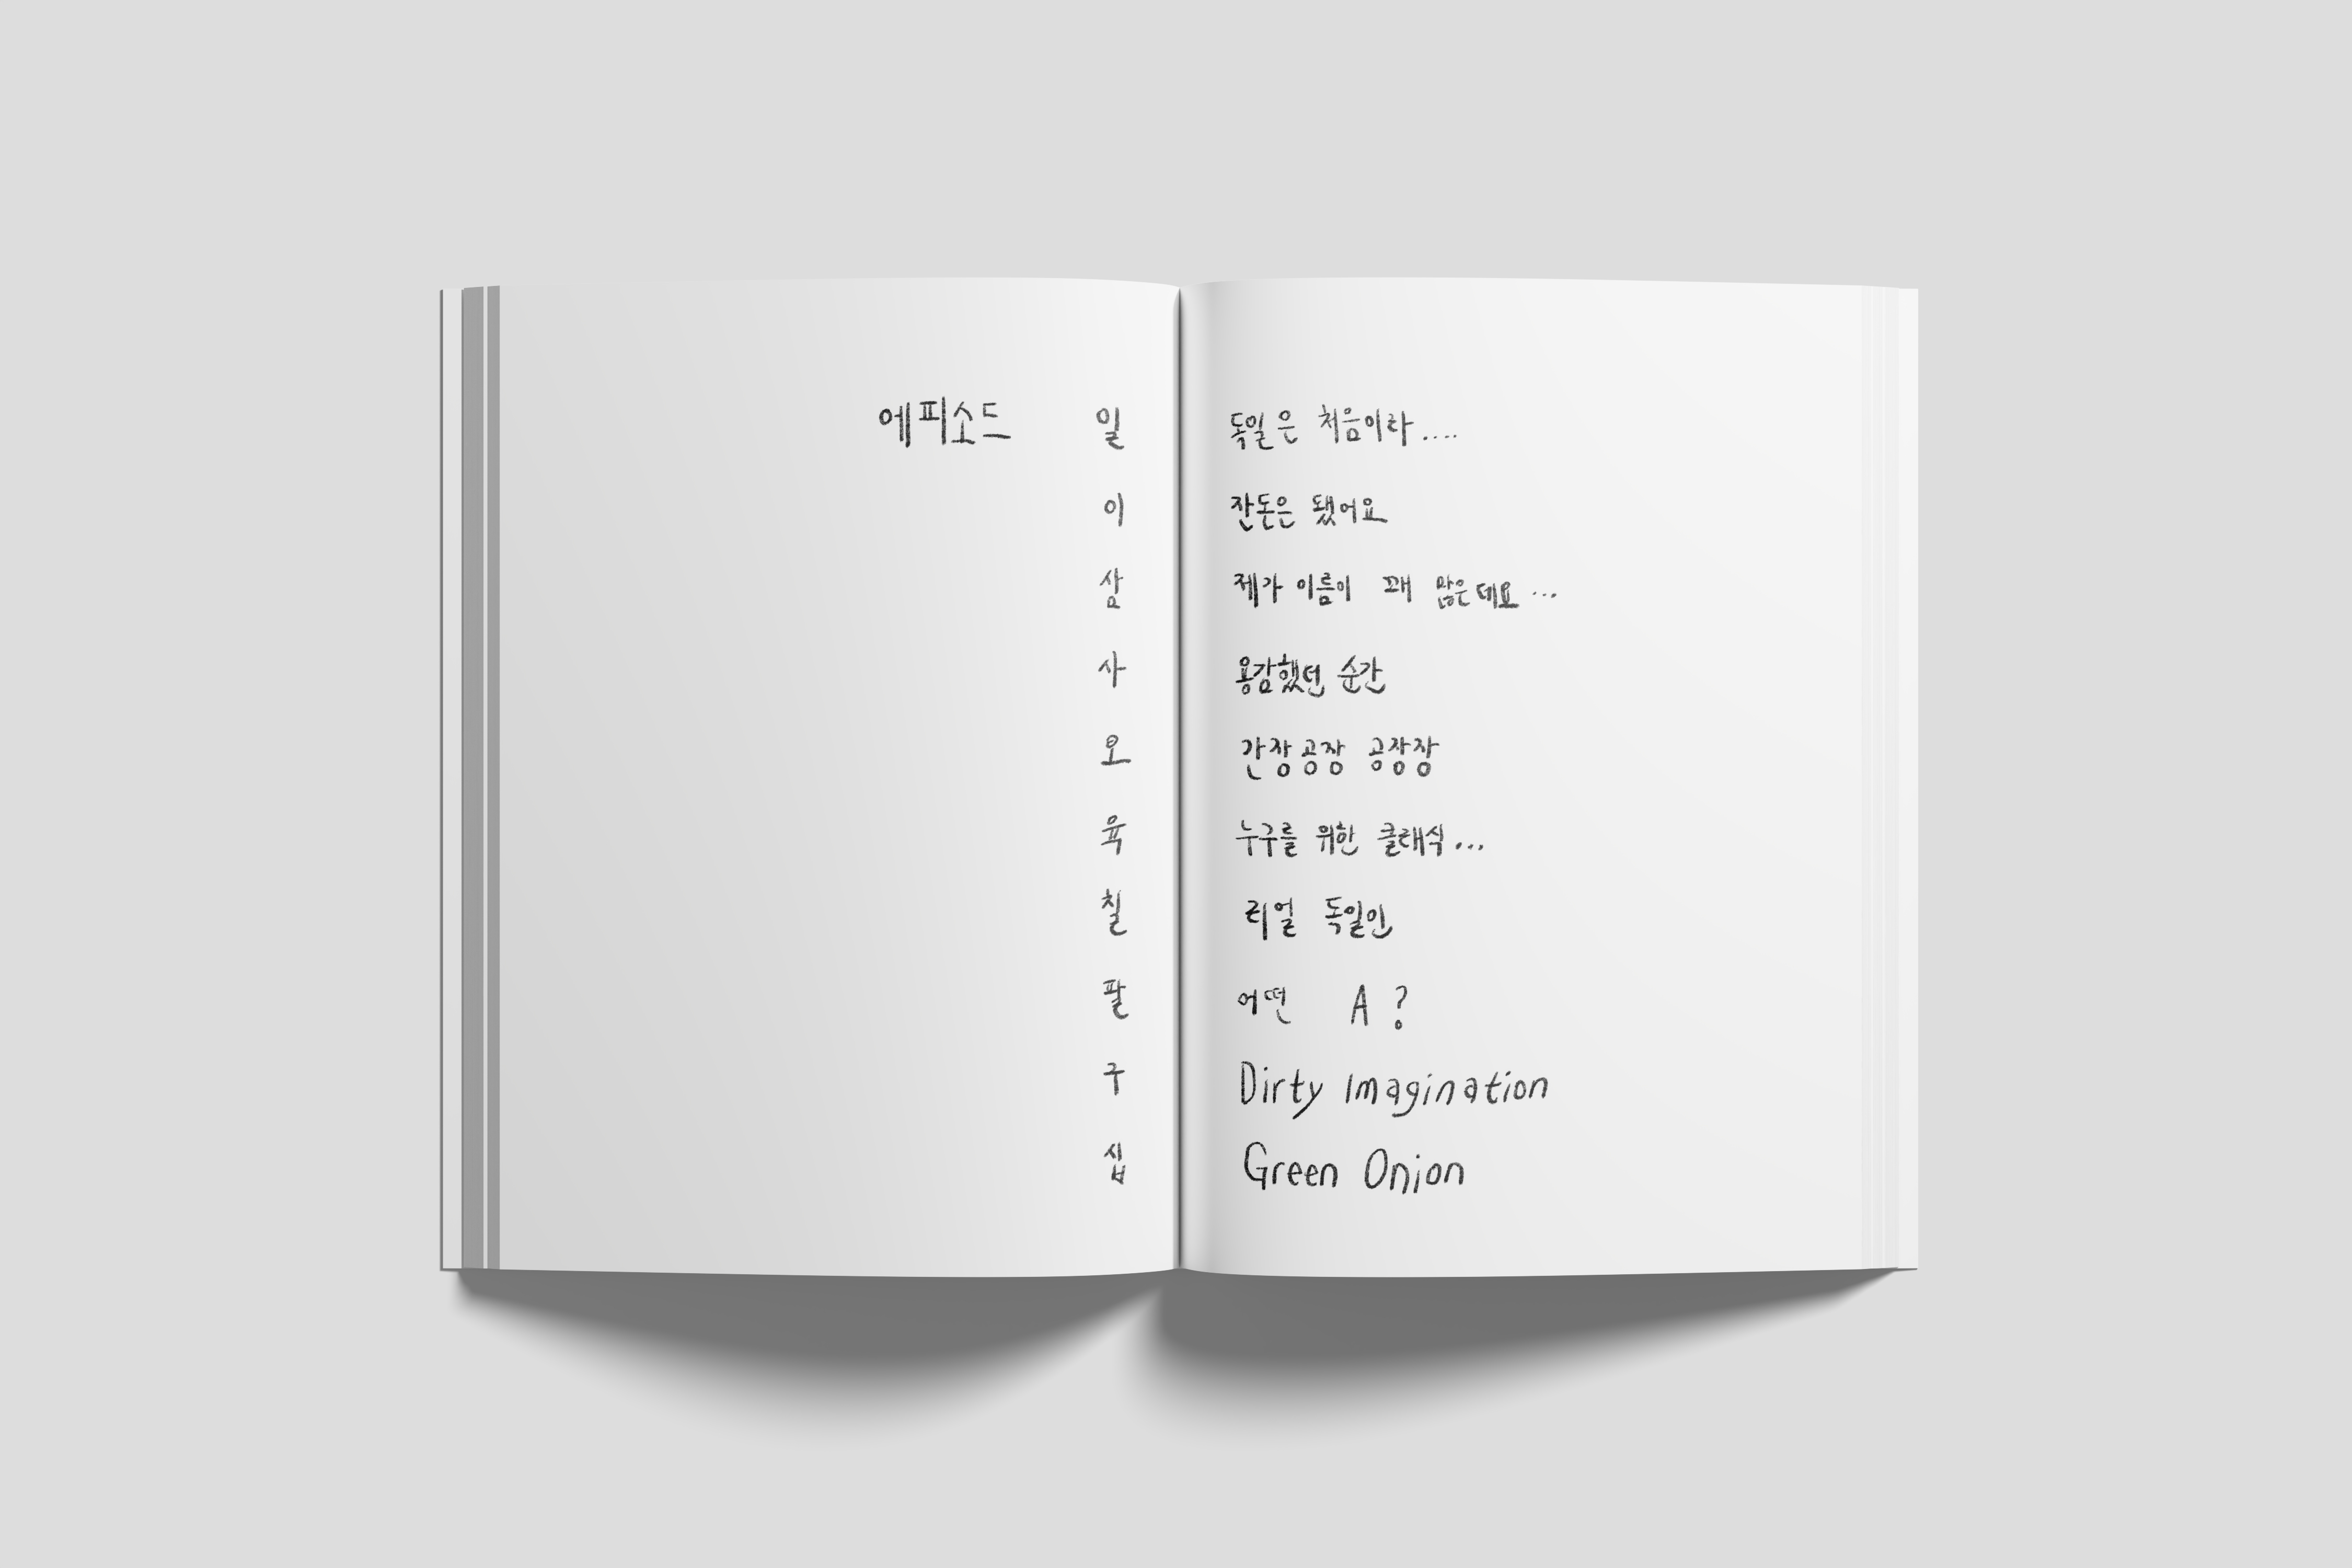 에피소드 일 독일은 처음이라....
이 잔돈은 됐어요
삼 제가 이름이 꽤 많은데요...
사 용감했던 순간
오 간장공장 공장장
육 누구를 위한 클래식...
칠 리얼 독일인
팔 어떤 A?
구 Dirty Imagination
십 Green Onion